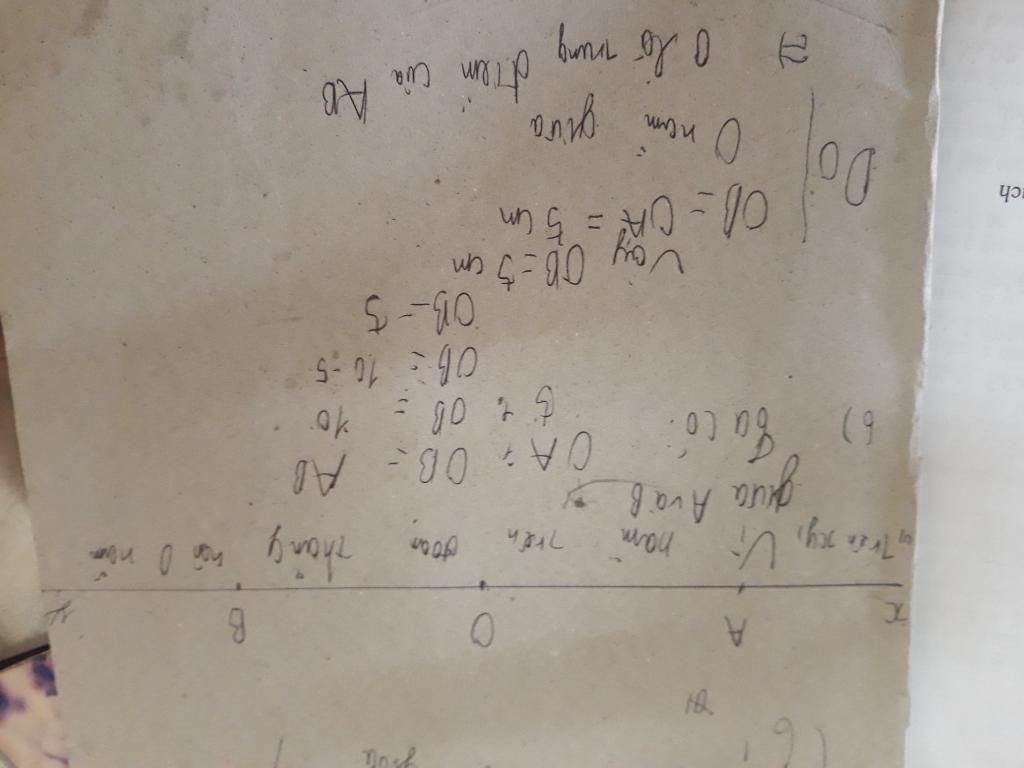 x A O B
a) Trên xy, Vì nằm trên đoạn thẳng nên O nằm
giữa A và B
b) Ta có:
OA + OB = AB
5 + OB = 10
OB = 10-5
OB = 5
Vậy OB = 5 cm
Do OB = OA = 5 cm
O nằm giữa
=) O là trung điểm của AB